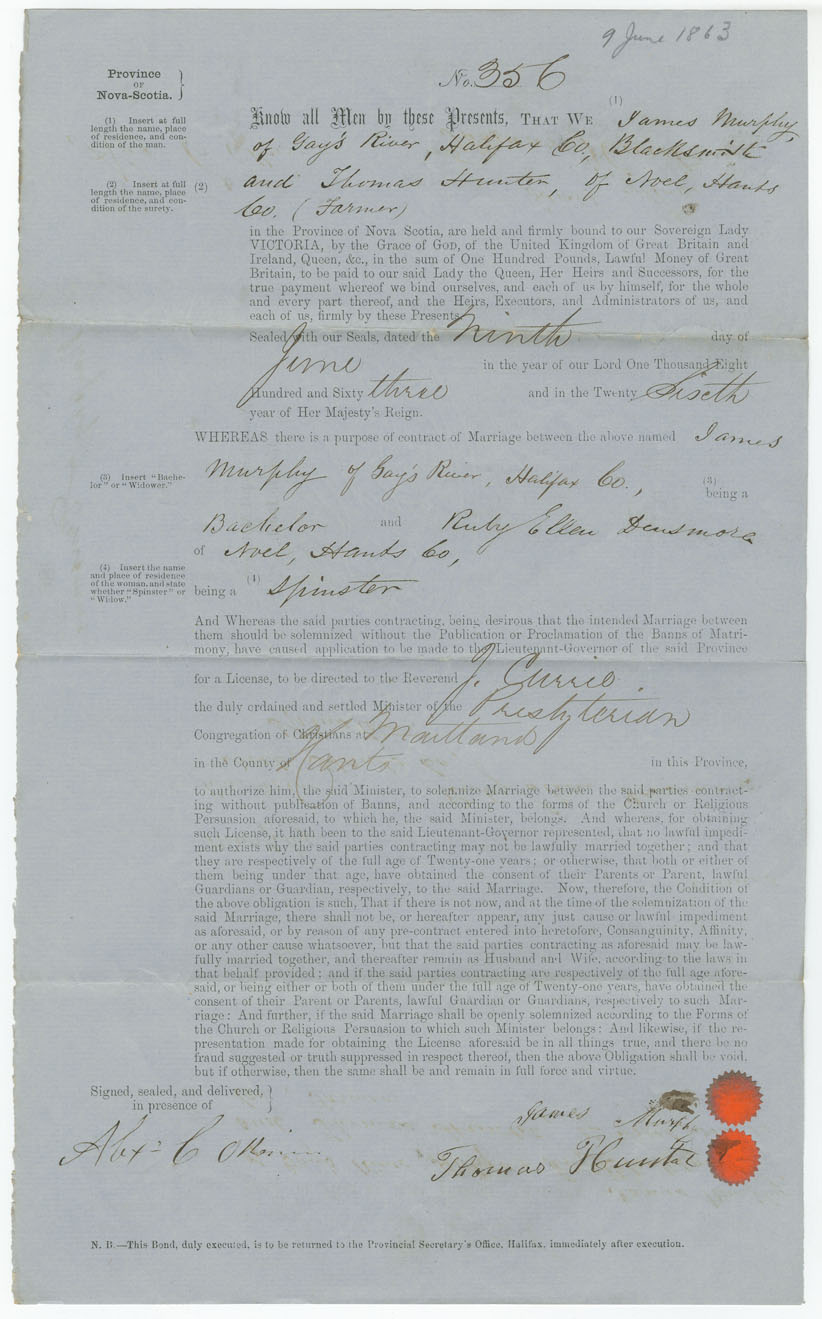 9 June 1863
Province
OF
Nova-Scotia.
No. 356
(1) Insert at full
length the name, place
of residence, and con-
dition of the man.
(1)
Know all Men by these Presents, THAT WE James Murphy,
of Gay's River, Halifax Co, Blacksmith
(2) Insert at full
length the name, place
of residence, and con-
dition of the surety.
(2) and Thomas Hunter, of Noel, Hants
Co. (Farmer)
in the Province of Nova Scotia, are held and firmly bound to our Sovereign Lady
VICTORIA, by the Grace of GOD, of the United Kingdom of Great Britain and
Ireland, Queen, &c., in the sum of One Hundred Pounds, Lawful Money of Great
Britain, to be paid to our said Lady the Queen, Her Heirs and Successors, for the
true payment whereof we bind ourselves, and each of us by himself, for the whole
and every part thereof, and the Heirs, Executors, and Administrators of us, and
each of us, firmly by these Presents.
Sealed with our Seals, dated the Ninth day of
June in the year of our Lord One Thousand Eight
Hundred and Sixty three and in the Twenty Sixth
year of Her Majesty's Reign.
WHEREAS there is a purpose of contract of Marriage between the above named James
Murphy of Gay's River, Halifax Co.,
(3) Insert "Bache-
lor" or "Widower."
(3)
being a
Bachelor and Ruby Ellen Densmore
of Noel, Hants Co,
(4) Insert the name
and place of residence
of the woman, and state
whether "Spinster" or
"Widow."
being a (4) Spinster
And Whereas the said parties contracting, being desirous that the intended Marriage between
them should be solemnized without the Publication or Proclamation of the Banns of Matri-
mony, have caused application to be made to the Lieutenant-Governor of the said Province
for a License, to be directed to the Reverend J. Currie
the duly ordained and settled Minister of the Presbyterian
Congregation of Christians at Maitland
in the County of Hants in this Province,
to authorize him, the said Minister, to solemnize Marriage between the said parties contract-
ing without publication of Banns, and according to the forms of the Church or Religious
Persuasion aforesaid, to which he, the said Minister, belongs. And whereas, for obtaining
such License, it hath been to the said Lieutenant-Governor represented, that no lawful impedi-
ment exists why the said parties contracting may not be lawfully married together; and that
they are respectively of the full age of Twenty-one years; or otherwise, that both or either of
them being under that age, have obtained the consent of their Parents or Parent, lawful
Guardians or Guardian, respectively, to the said Marriage. Now, therefore, the Condition of
the above obligation is such, That if there is not now, and at the time of the solemnization of the
said Marriage, there shall not be, or hereafter appear, any just cause or lawful impediment
as aforesaid, or by reason of any pre-contract entered into heretofore, Consanguinity, Affinity,
or any other cause whatsoever, but that the said parties contracting as aforesaid may be law-
fully married together, and thereafter remain as Husband and Wife, according to the laws in
that behalf provided; and if the said parties contracting are respectively of the full age afore-
said, or being either or both of them under the full age of Twenty-one years, have obtained the
consent of their Parent or Parents, lawful Guardian or Guardians, respectively to such Mar-
riage: And further, if the said Marriage shall be openly solemnized according to the Forms of
the Church or Religious Persuasion to which such Minister belongs: And likewise, if the re-
presentation made for obtaining the License aforesaid be in all things true, and there be no
fraud suggested or truth suppressed in respect thereof, then the above Obligation shall be void,
but if otherwise, then the same shall be and remain in full force and virtue.
Signed, sealed, and delivered,
in presence of
James Murphy
Thomas Hunter
N. B.—This Bond, duly executed, is to be returned to the Provincial Secretary's Office, Halifax, immediately after execution.